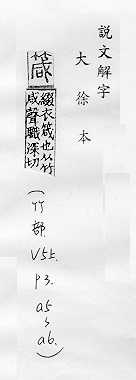 說文解字
大徐本
箴
綴衣箴也从竹
咸聲職深切
(竹部 V5上 P3. a5〜a6.)